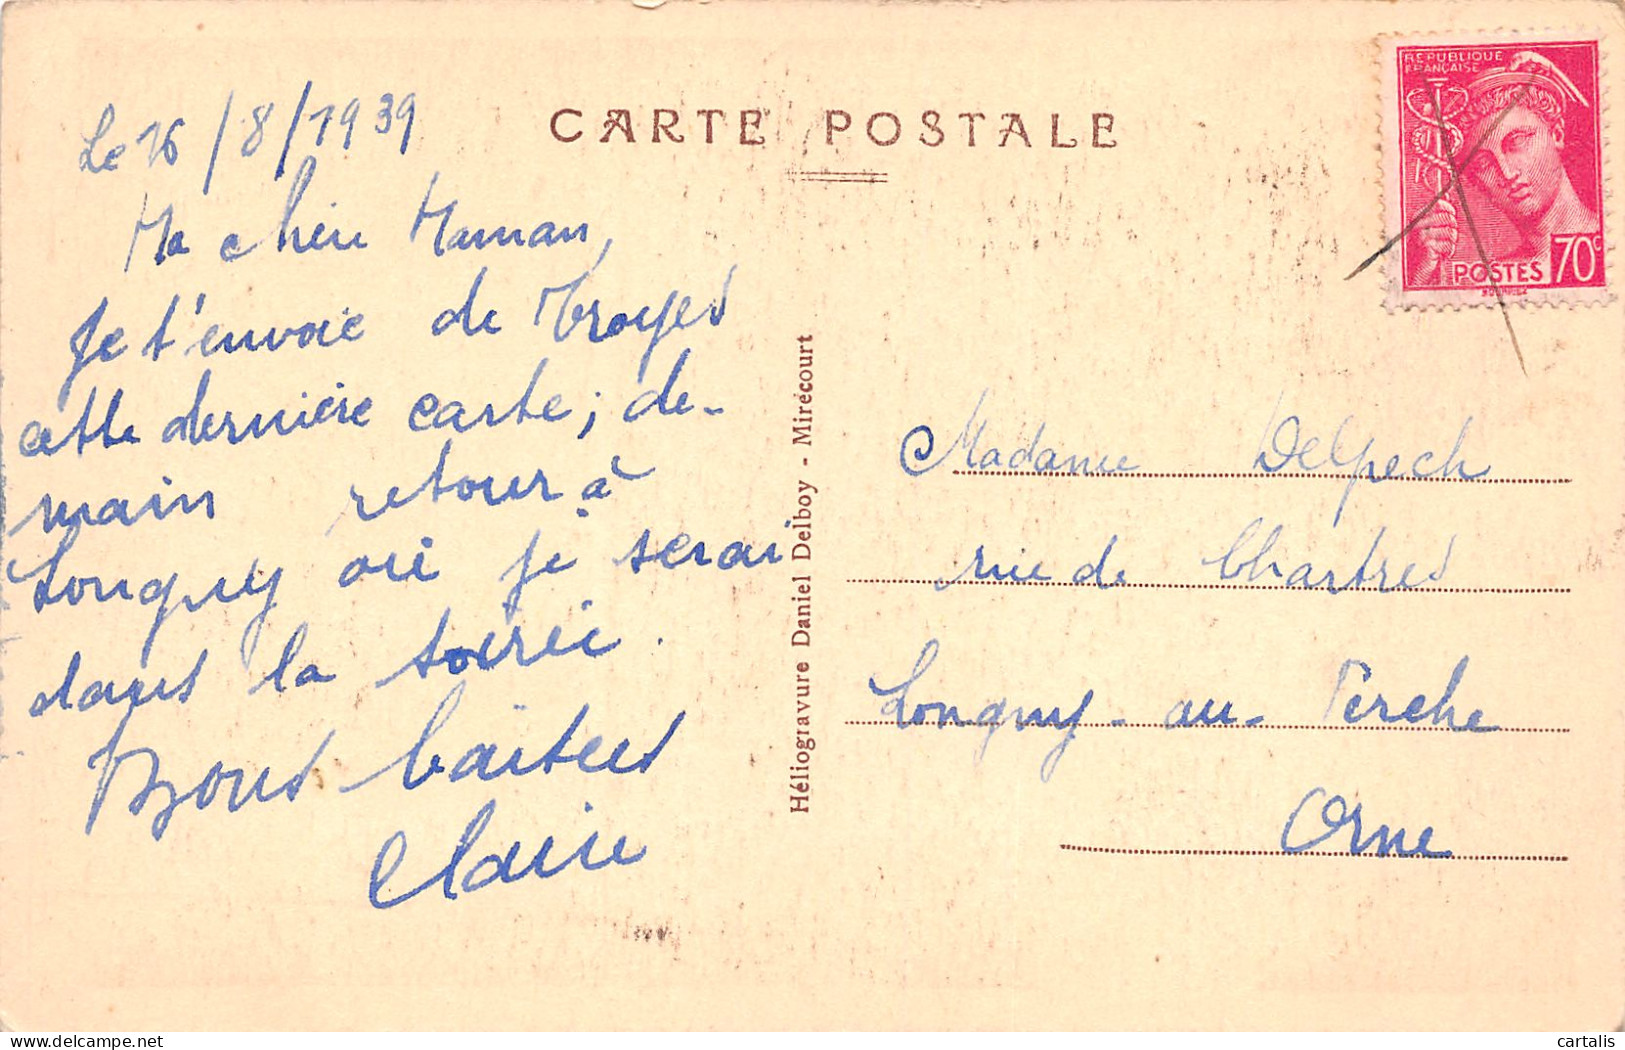 CARTE POSTALE
RÉPUBLIQUE
FRANÇAISE
POSTES 70c
Le 16/8/1939
Ma chère Maman,
Je t'envoie de Troyes
cette dernière carte; de-
main retour à
Longny où je serai
dans la soirée.
Bons baisers
Claire
Héliogravure Daniel Delboy - Mirecourt
Madame Delpech
rue de Chartres
Longny-au-Perche
Orne
delcampe.net
cartalis